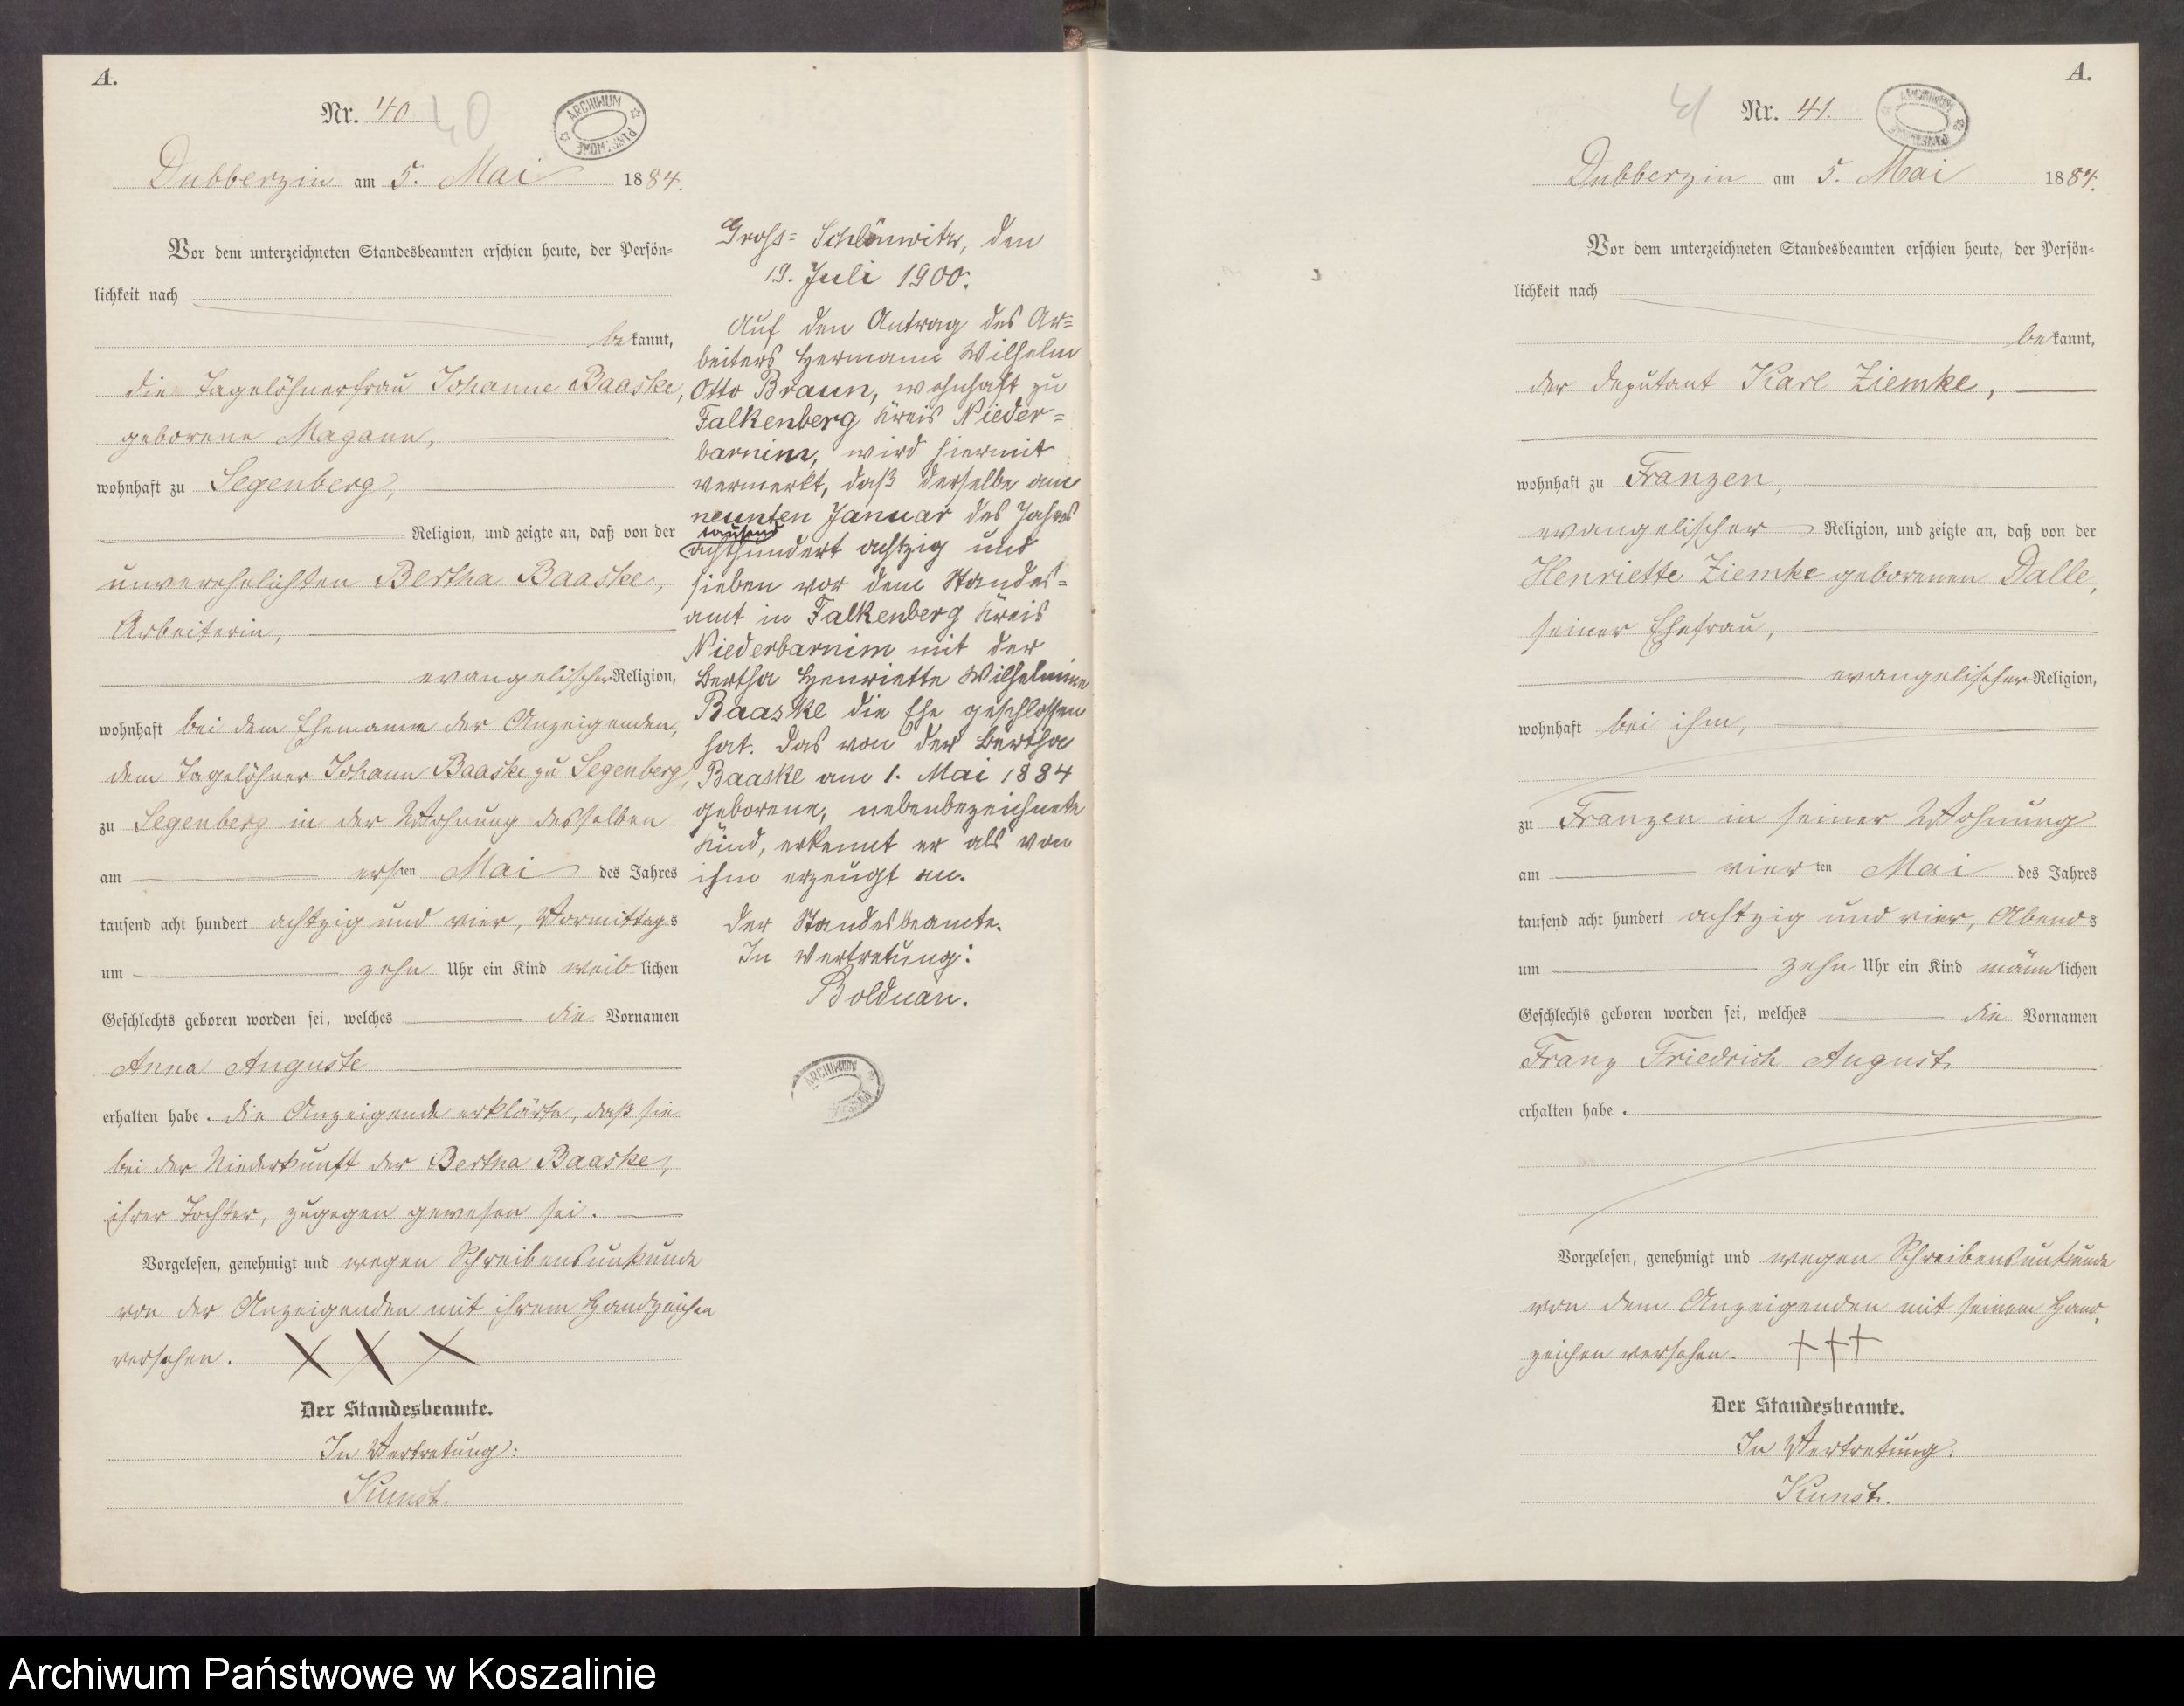 A.
Nr. 40
40
ARCHIWUM PAŃSTWOWE
Dubberzin am 5. Mai 1884.
Vor dem unterzeichneten Standesbeamten erschien heute, der Persön=
lichkeit nach
bekannt,
die Tagelöhnerfrau Johanne Baaske,
geborene Magann,
wohnhaft zu Segenberg,
Religion, und zeigte an, daß von der
unverehelichten Bertha Baaske,
Arbeiterin,
evangelischer Religion,
wohnhaft bei dem Ehemanne der Anzeigenden,
dem Tagelöhner Johann Baaske zu Segenberg,
zu Segenberg in der Wohnung desselben
am ersten Mai des Jahres
tausend acht hundert achtzig und vier, Vormittags
um zehn Uhr ein Kind weiblichen
Geschlechts geboren worden sei, welches die Vornamen
Anna Auguste
erhalten habe. Die Anzeigende erklärte, daß sie
bei der Niederkunft der Bertha Baaske,
ihrer Tochter, zugegen gewesen sei.
Vorgelesen, genehmigt und wegen Schreibensunkunde
von der Anzeigenden mit ihrem Handzeichen
versehen. X X X
Der Standesbeamte.
In Vertretung:
Kunst.
Gross= Schlönwitz, den
19. Juli 1900.
Auf den Antrag des Ar=
beiters Hermann Wilhelm
Otto Braun, wohnhaft zu
Falkenberg Kreis Nieder=
barnim, wird hiermit
vermerkt, daß derselbe am
neunten Januar des Jahres
tausend
achthundert achtzig und
sieben vor dem Standes=
amt in Falkenberg Kreis
Niederbarnim mit der
Bertha Henriette Wilhelmine
Baaske die Ehe geschlossen
hat. Das von der Bertha
Baaske am 1. Mai 1884
geborene, nebenbezeichnete
Kind, erkennt er als von
ihm erzeugt an.
Der Standesbeamte.
In Vertretung:
Bolduan.
ARCHIWUM
A.
41
Nr. 41.
ARCHIWUM PAŃSTWOWE
Dubberzin am 5. Mai 1884.
Vor dem unterzeichneten Standesbeamten erschien heute, der Persön=
lichkeit nach
bekannt,
der Deputant Karl Ziemke,
wohnhaft zu Franzen,
evangelischer Religion, und zeigte an, daß von der
Henriette Ziemke geborenen Dalle,
seiner Ehefrau,
evangelischer Religion,
wohnhaft bei ihm,
zu Franzen in seiner Wohnung
am vierten Mai des Jahres
tausend acht hundert achtzig und vier, Abends
um zehn Uhr ein Kind männlichen
Geschlechts geboren worden sei, welches die Vornamen
Franz Friedrich August
erhalten habe.
Vorgelesen, genehmigt und wegen Schreibensunkunde
von dem Anzeigenden mit seinem Hand=
zeichen versehen. +++
Der Standesbeamte.
In Vertretung:
Kunst.
Archiwum Państwowe w Koszalinie